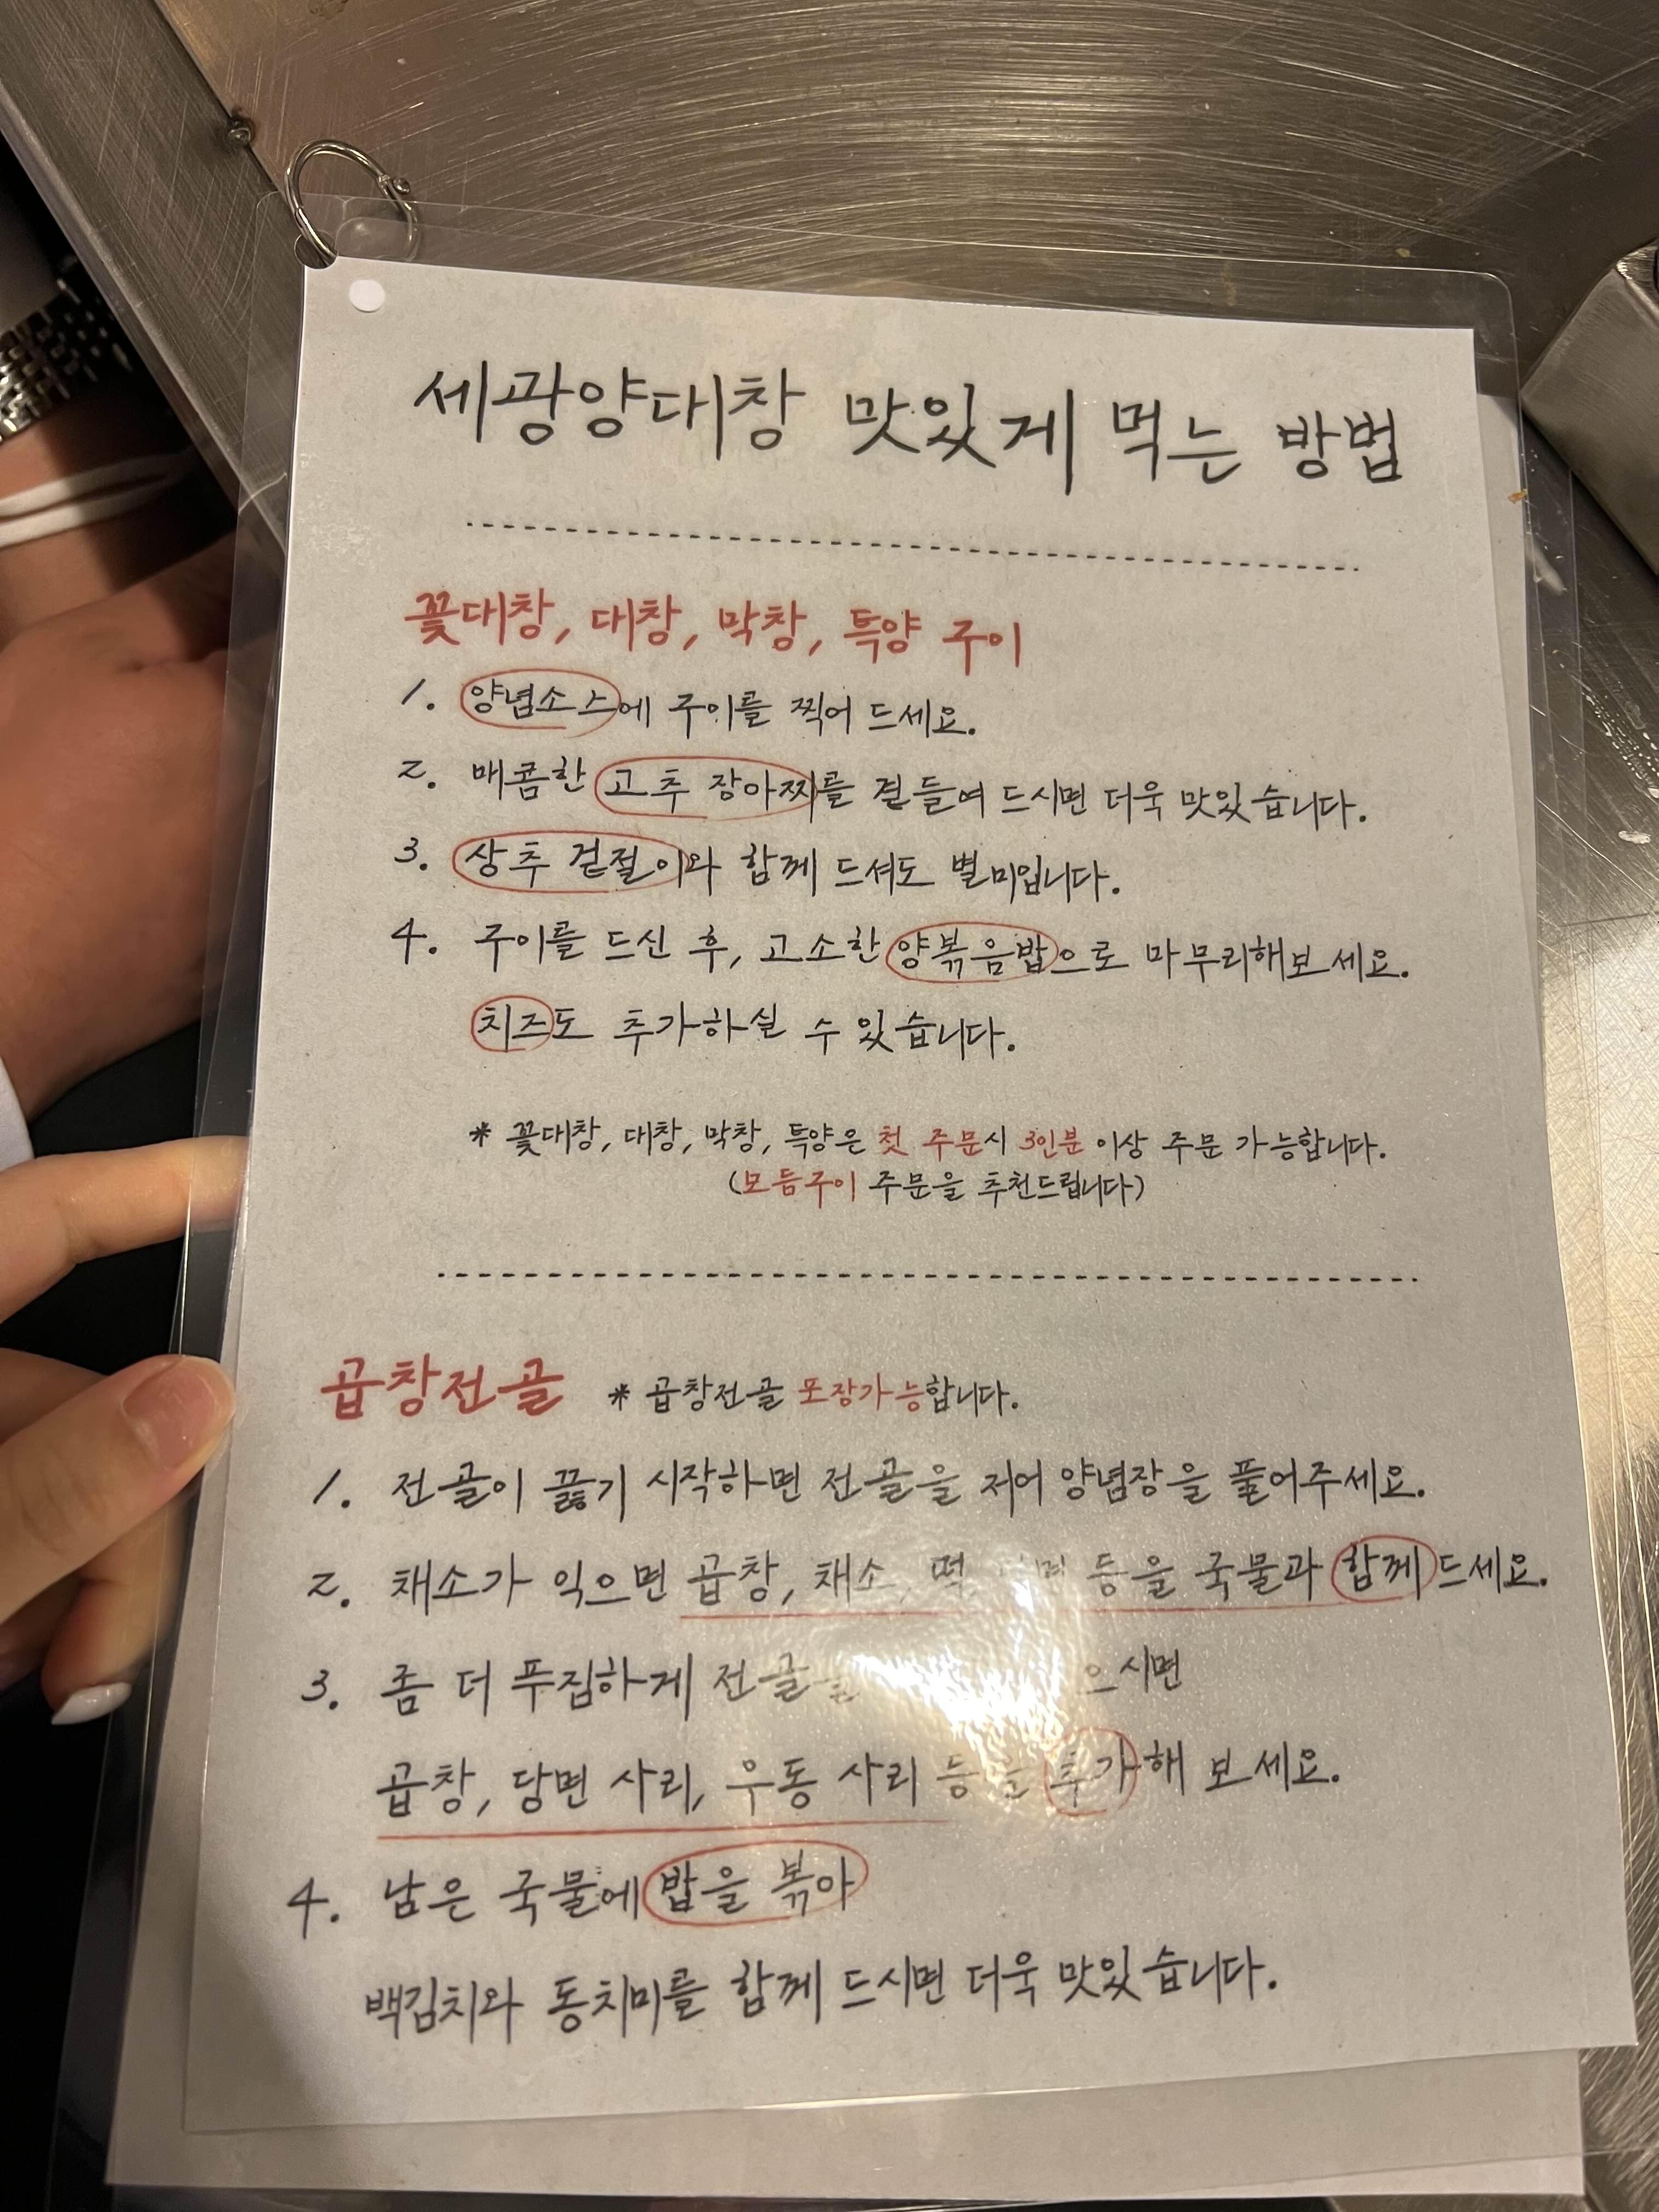 세광양대창 맛있게 먹는 방법
꽃대창, 대창, 막창, 특양 구이
1. 양념소스에 구이를 찍어 드세요.
2. 매콤한 고추 장아찌를 곁들여 드시면 더욱 맛있습니다.
3. 상추 겉절이와 함께 드셔도 별미입니다.
4. 구이를 드신 후, 고소한 양볶음밥으로 마무리해보세요.
치즈도 추가하실 수 있습니다.
* 꽃대창, 대창, 막창, 특양은 첫 주문시 3인분 이상 주문 가능합니다.
(모듬구이 주문을 추천드립니다)
곱창전골 * 곱창전골 포장가능합니다.
1. 전골이 끓기 시작하면 전골을 저어 양념장을 풀어주세요.
2. 채소가 익으면 곱창, 채소, 떡 등을 국물과 함께 드세요.
3. 좀 더 푸짐하게 전골을 으시면
곱창, 당면 사리, 우동 사리 등을 추가해 보세요.
4. 남은 국물에 밥을 볶아
백김치와 동치미를 함께 드시면 더욱 맛있습니다.